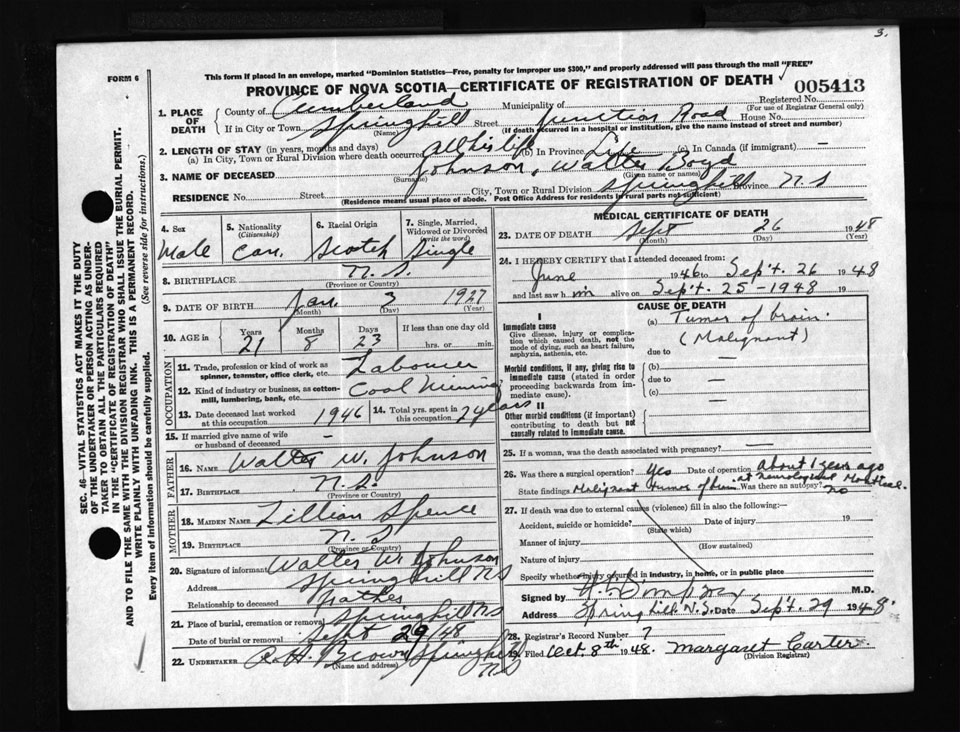 3.
FORM 6
This form if placed in an envelope, marked "Dominion Statistics—Free, penalty for improper use $300," and properly addressed will pass through the mail "FREE"
PROVINCE OF NOVA SCOTIA—CERTIFICATE OF REGISTRATION OF DEATH ✓
005413
Registered No.
(For use of Registrar General only)
1. PLACE OF DEATH
County of Cumberland Municipality of
If in City or Town Springhill Street Junction Road House No.
(Name) (If death occurred in a hospital or institution, give the name instead of street and number)
2. LENGTH OF STAY (in years, months and days)
(a) In City, Town or Rural Division where death occurred all his life (b) In Province Life (c) In Canada (if immigrant) —
3. NAME OF DECEASED Johnson, Walter Boyd
(Surname) (Given name or names)
RESIDENCE No. Street City, Town or Rural Division Springhill Province N.S
(Residence means usual place of abode. Post Office Address for residents in rural parts not sufficient)
4. Sex Male
5. Nationality (Citizenship) Can.
6. Racial Origin Scotch
7. Single, Married, Widowed or Divorced (write the word) Single
8. BIRTHPLACE N.S.
(Province or Country)
9. DATE OF BIRTH Jan. 3 1927
(Month) (Day) (Year)
10. AGE in Years 21 Months 8 Days 23 If less than one day
hrs. or min.
OCCUPATION
11. Trade, profession or kind of work as spinner, teamster, office clerk, etc. Labourer
12. Kind of industry or business, as cotton-mill, lumbering, bank, etc. Coal Mining
13. Date deceased last worked at this occupation 1946
14. Total yrs. spent in this occupation 2 years
15. If married give name of wife or husband of deceased —
FATHER
16. Name Walter W. Johnson
17. Birthplace N.S.
(Province or Country)
MOTHER
18. Maiden Name Lillian Spence
19. Birthplace N.S
(Province or Country)
20. Signature of informant Walter W. Johnson
Address Springhill NS
Relationship to deceased Father
21. Place of burial, cremation or removal Springhill NS
Date of burial or removal Sept 29/48
22. Undertaker R.H. Brown Springhill NS
(Name and address)
MEDICAL CERTIFICATE OF DEATH
23. DATE OF DEATH Sept 26 1948
(Month) (Day) (Year)
24. I HEREBY CERTIFY that I attended deceased from:
June 1946 to Sep't. 26 1948
and last saw him alive on Sep't. 25-1948 19
CAUSE OF DEATH
I
Immediate cause
Give disease, injury or complication which caused death, not the mode of dying, such as heart failure, asphyxia, asthenia, etc.
(a) Tumor of brain.
(Malignant)
due to —
Morbid conditions, if any, giving rise to immediate cause (stated in order proceeding backwards from immediate cause).
(b) —
due to —
(c) —
II
Other morbid conditions (if important) contributing to death but not causally related to immediate cause.
25. If a woman, was the death associated with pregnancy? —
26. Was there a surgical operation? Yes Date of operation about 1 years ago
at Neurological Montreal.
State findings Malignant tumor of brain Was there an autopsy? no
27. If death was due to external causes (violence) fill in also the following:—
Accident, suicide or homicide? Date of injury 19
(State which)
Manner of injury
(How sustained)
Nature of injury
Specify whether injury occurred in industry, in home, or in public place
Signed by M.D.
Address Springhill N.S. Date Sep't. 29 1948.
28. Registrar's Record Number 7
29. Filed Oct. 8th 1948. Margaret Carter
(Division Registrar)
SEC. 46—VITAL STATISTICS ACT MAKES IT THE DUTY
OF THE UNDERTAKER OR PERSON ACTING AS UNDER-
TAKER TO OBTAIN ALL THE PARTICULARS REQUIRED
IN THE "CERTIFICATE OF REGISTRATION OF DEATH"
AND TO FILE THE SAME WITH THE DIVISION REGISTRAR WHO SHALL ISSUE THE BURIAL PERMIT.
WRITE PLAINLY WITH UNFADING INK. THIS IS A PERMANENT RECORD.
Every item of information should be carefully supplied. (See reverse side for instructions.)